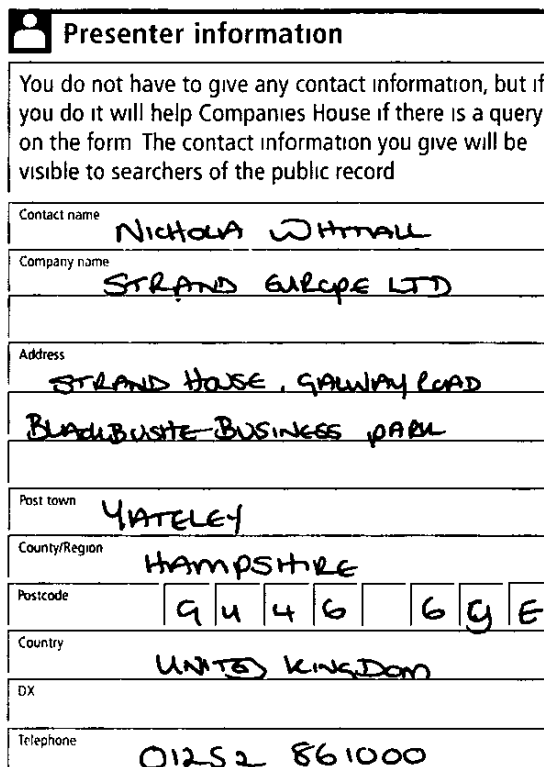 Presenter information
You do not have to give any contact information, but if
you do it will help Companies House if there is a query
on the form The contact information you give will be
visible to searchers of the public record
Contact name NICHOLA WHITTALL
Company name STRAND EUROPE LTD
Address
STRAND HOUSE, GALWAY ROAD
BLACKBUSHE BUSINESS PARK
Post town YATELEY
County/Region HAMPSHIRE
Postcode GU46 6GE
Country UNITED KINGDOM
DX
Telephone 01252 861000